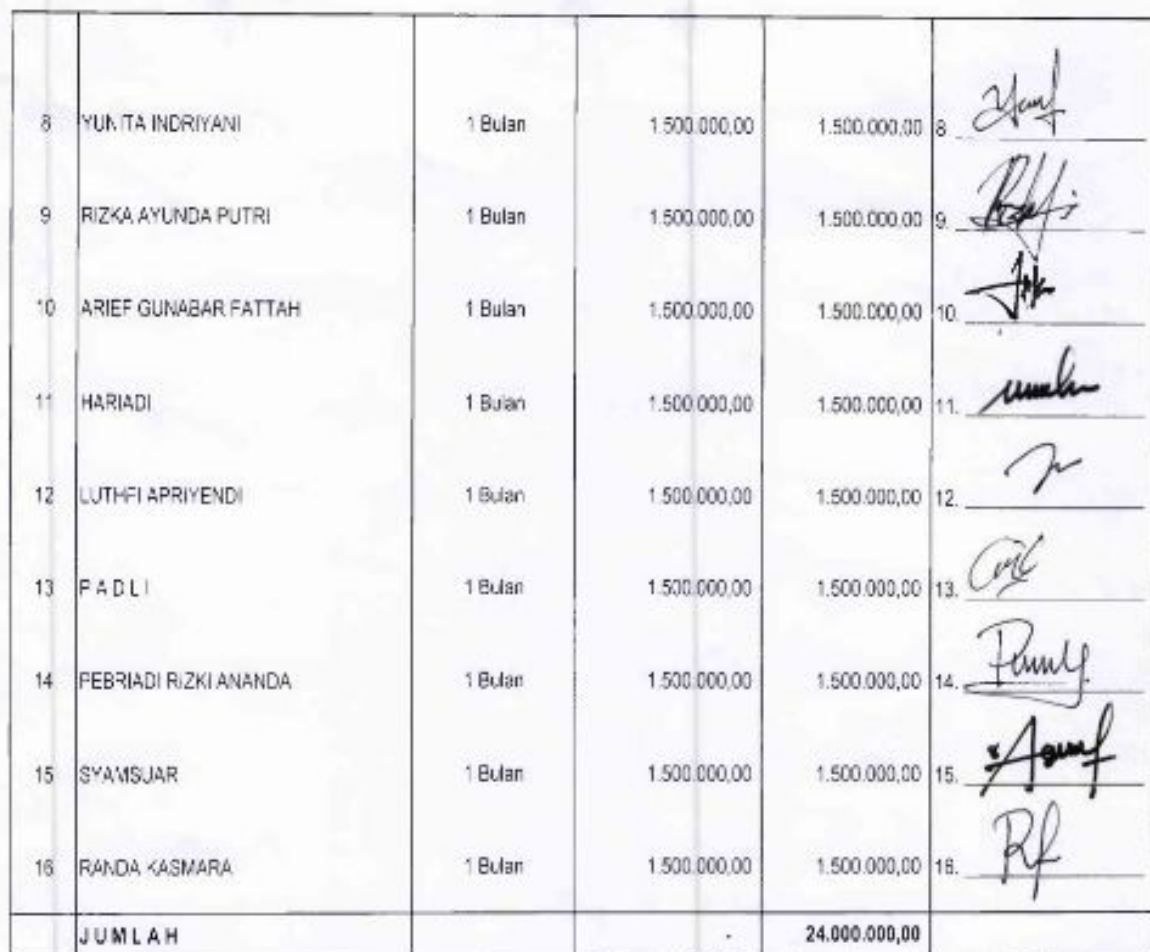 8 YUNITA INDRIYANI 1 Bulan 1.500.000,00 1.500.000,00 8.
9 RIZKA AYUNDA PUTRI 1 Bulan 1.500.000,00 1.500.000,00 9.
10 ARIEF GUNABAR FATTAH 1 Bulan 1.500.000,00 1.500.000,00 10.
11 HARIADI 1 Bulan 1.500.000,00 1.500.000,00 11.
12 LUTHFI APRIYENDI 1 Bulan 1.500.000,00 1.500.000,00 12.
13 P A D L I 1 Bulan 1.500.000,00 1.500.000,00 13.
14 PEBRIADI RIZKI ANANDA 1 Bulan 1.500.000,00 1.500.000,00 14.
15 SYAMSUAR 1 Bulan 1.500.000,00 1.500.000,00 15.
16 RANDA KASMARA 1 Bulan 1.500.000,00 1.500.000,00 16.
JUMLAH 24.000.000,00